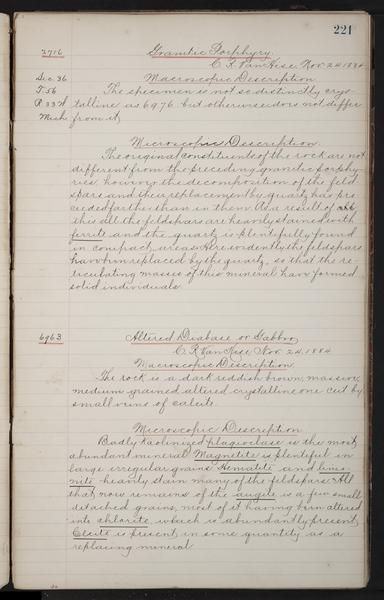 221
2716 Granitic Porphyry.
C. R. Van Hise, Nov. 24. 1884
Sec. 36 Macroscopic Description
T. 56 The specimen is not so distinctly crys-
R. 33 W talline as 6976. but otherwise does not differ
Mich from it
Microscopic Description.
The original constituents of the rock are not
different from the preceding granitic porphy-
ries however the decomposition of the feld
spars and their replacement by quartz has pro-
ceeded farther than in them. As a result of
this all the feldspars are heavily stained with
ferrite and the quartz is plentifully found
in compact areas. Here evidently the feldspars
have been replaced by the quartz, so that the re-
ticulating masses of this mineral have formed
solid individuals.
6963 Altered Diabase or Gabbro,
C. R. Van Hise Nov. 24. 1884
Macroscopic Description.
The rock is a dark reddish brown, massive,
medium grained altered crystalline one cut by
small veins of calcite.
Microscopic Description
Badly kaolinized plagioclase is the most
abundant mineral Magnetite is plentiful in
large irregular grains Hematite and limo-
nite heavily stain many of the feldspars. All
that now remains of the augite is a few small
detached grains, most of it having been altered
into chlorite, which is abundantly present,
Calcite is present in some quantity as a
replacing mineral